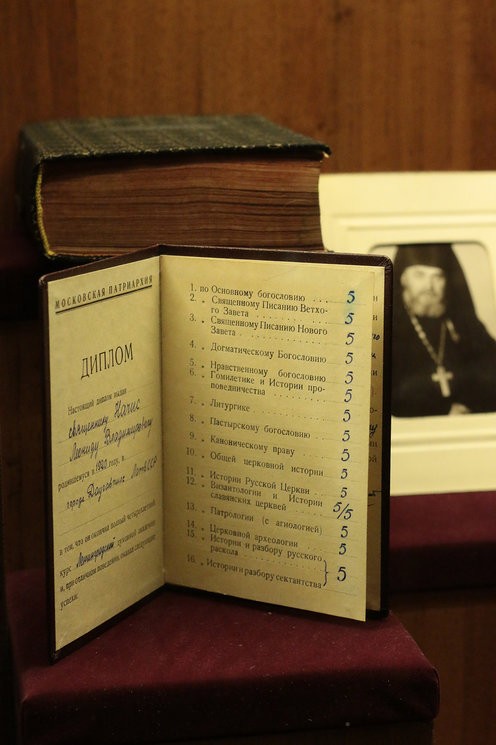 МОСКОВСКАЯ ПАТРИАРХИЯ
ДИПЛОМ
Настоящий диплом выдан
священнику Начис
Леониду Владимировичу
родившемуся в 1920 году, в
городе Даугавпилс Латв.ССР
в том, что он окончил полный четырехлетний
курс Ленинградской духовной академии
и, при отличном поведении, оказал следующие
успехи:
1. по Основному богословию . . . . 5
2. „ Священному Писанию Ветхо-
го Завета . . . . 5
3. „ Священному Писанию Нового
Завета . . . . 5
4. „ Догматическому Богословию 5
5. „ Нравственному богословию 5
6. „ Гомилетике и Истории про-
поведничества . . . . 5
7. „ Литургике . . . . 5
8. „ Пастырскому богословию . . 5
9. „ Каноническому праву . . . 5
10. „ Общей церковной истории 5
11. „ Истории Русской Церкви . . 5
12. „ Византологии и Истории
славянских церквей . . . 5/5
13. „ Патрологии (с агиологией) 5
14. „ Церковной археологии . . . 5
15. „ Истории и разбору русского
раскола . . . .
16. „ Истории и разбору сектантства } 5